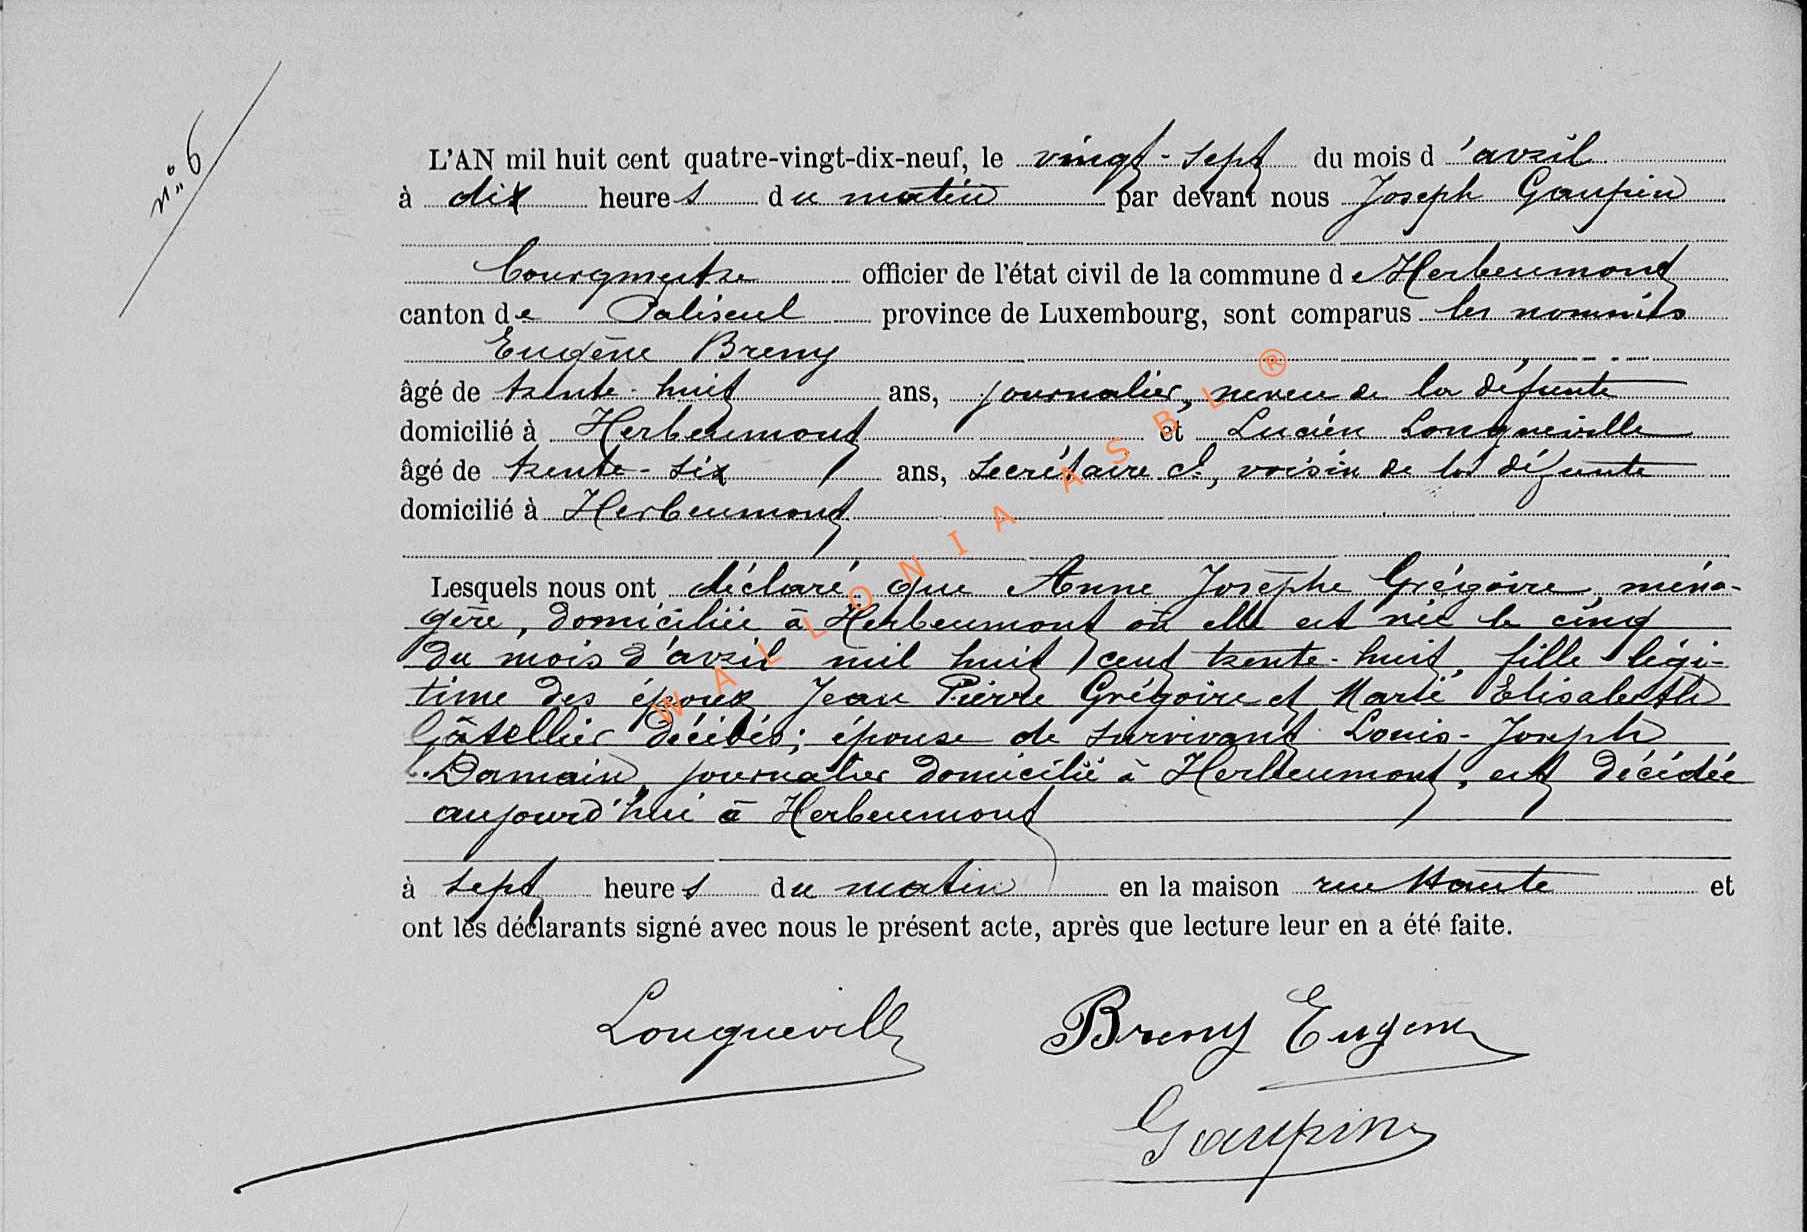 n° 6
L'AN mil huit cent quatre-vingt-dix-neuf, le vingt-sept du mois d'avril
à dix heures du matin par devant nous Joseph Gaupin
Bourgmestre officier de l'état civil de la commune de Herbeumont
canton de Paliseul province de Luxembourg, sont comparus les nommés
Eugène Breny
âgé de trente-huit ans, journalier, neveu de la défunte
domicilié à Herbeumont et Lucien Longueville
âgé de trente-six ans, secrétaire cl, voisin de la défunte
domicilié à Herbeumont
Lesquels nous ont déclaré que Anne Josèphe Grégoire, ména-
gère, domiciliée à Herbeumont où elle est née le cinq
du mois d'avril mil huit cent trente-huit, fille légi-
time des époux Jean Pierre Grégoire et Marie Elisabeth
décédés; épouse de survivant Louis-Joseph
Damain, journalier domicilié à Herbeumont, est décédée
aujourd'hui à Herbeumont
à sept heures du matin en la maison rue Haute et
ont les déclarants signé avec nous le présent acte, après que lecture leur en a été faite.
Longueville Breny Eugene
Gaupin
WALLONIA ASBL ®